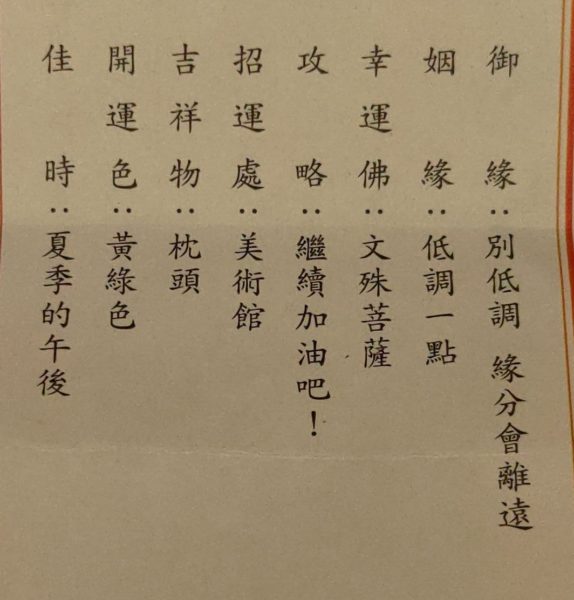 御緣：別低調 緣分會離遠
姻緣：低調一點
幸運佛：文殊菩薩
攻略：繼續加油吧！
招運處：美術館
吉祥物：枕頭
開運色：黃綠色
佳時：夏季的午後